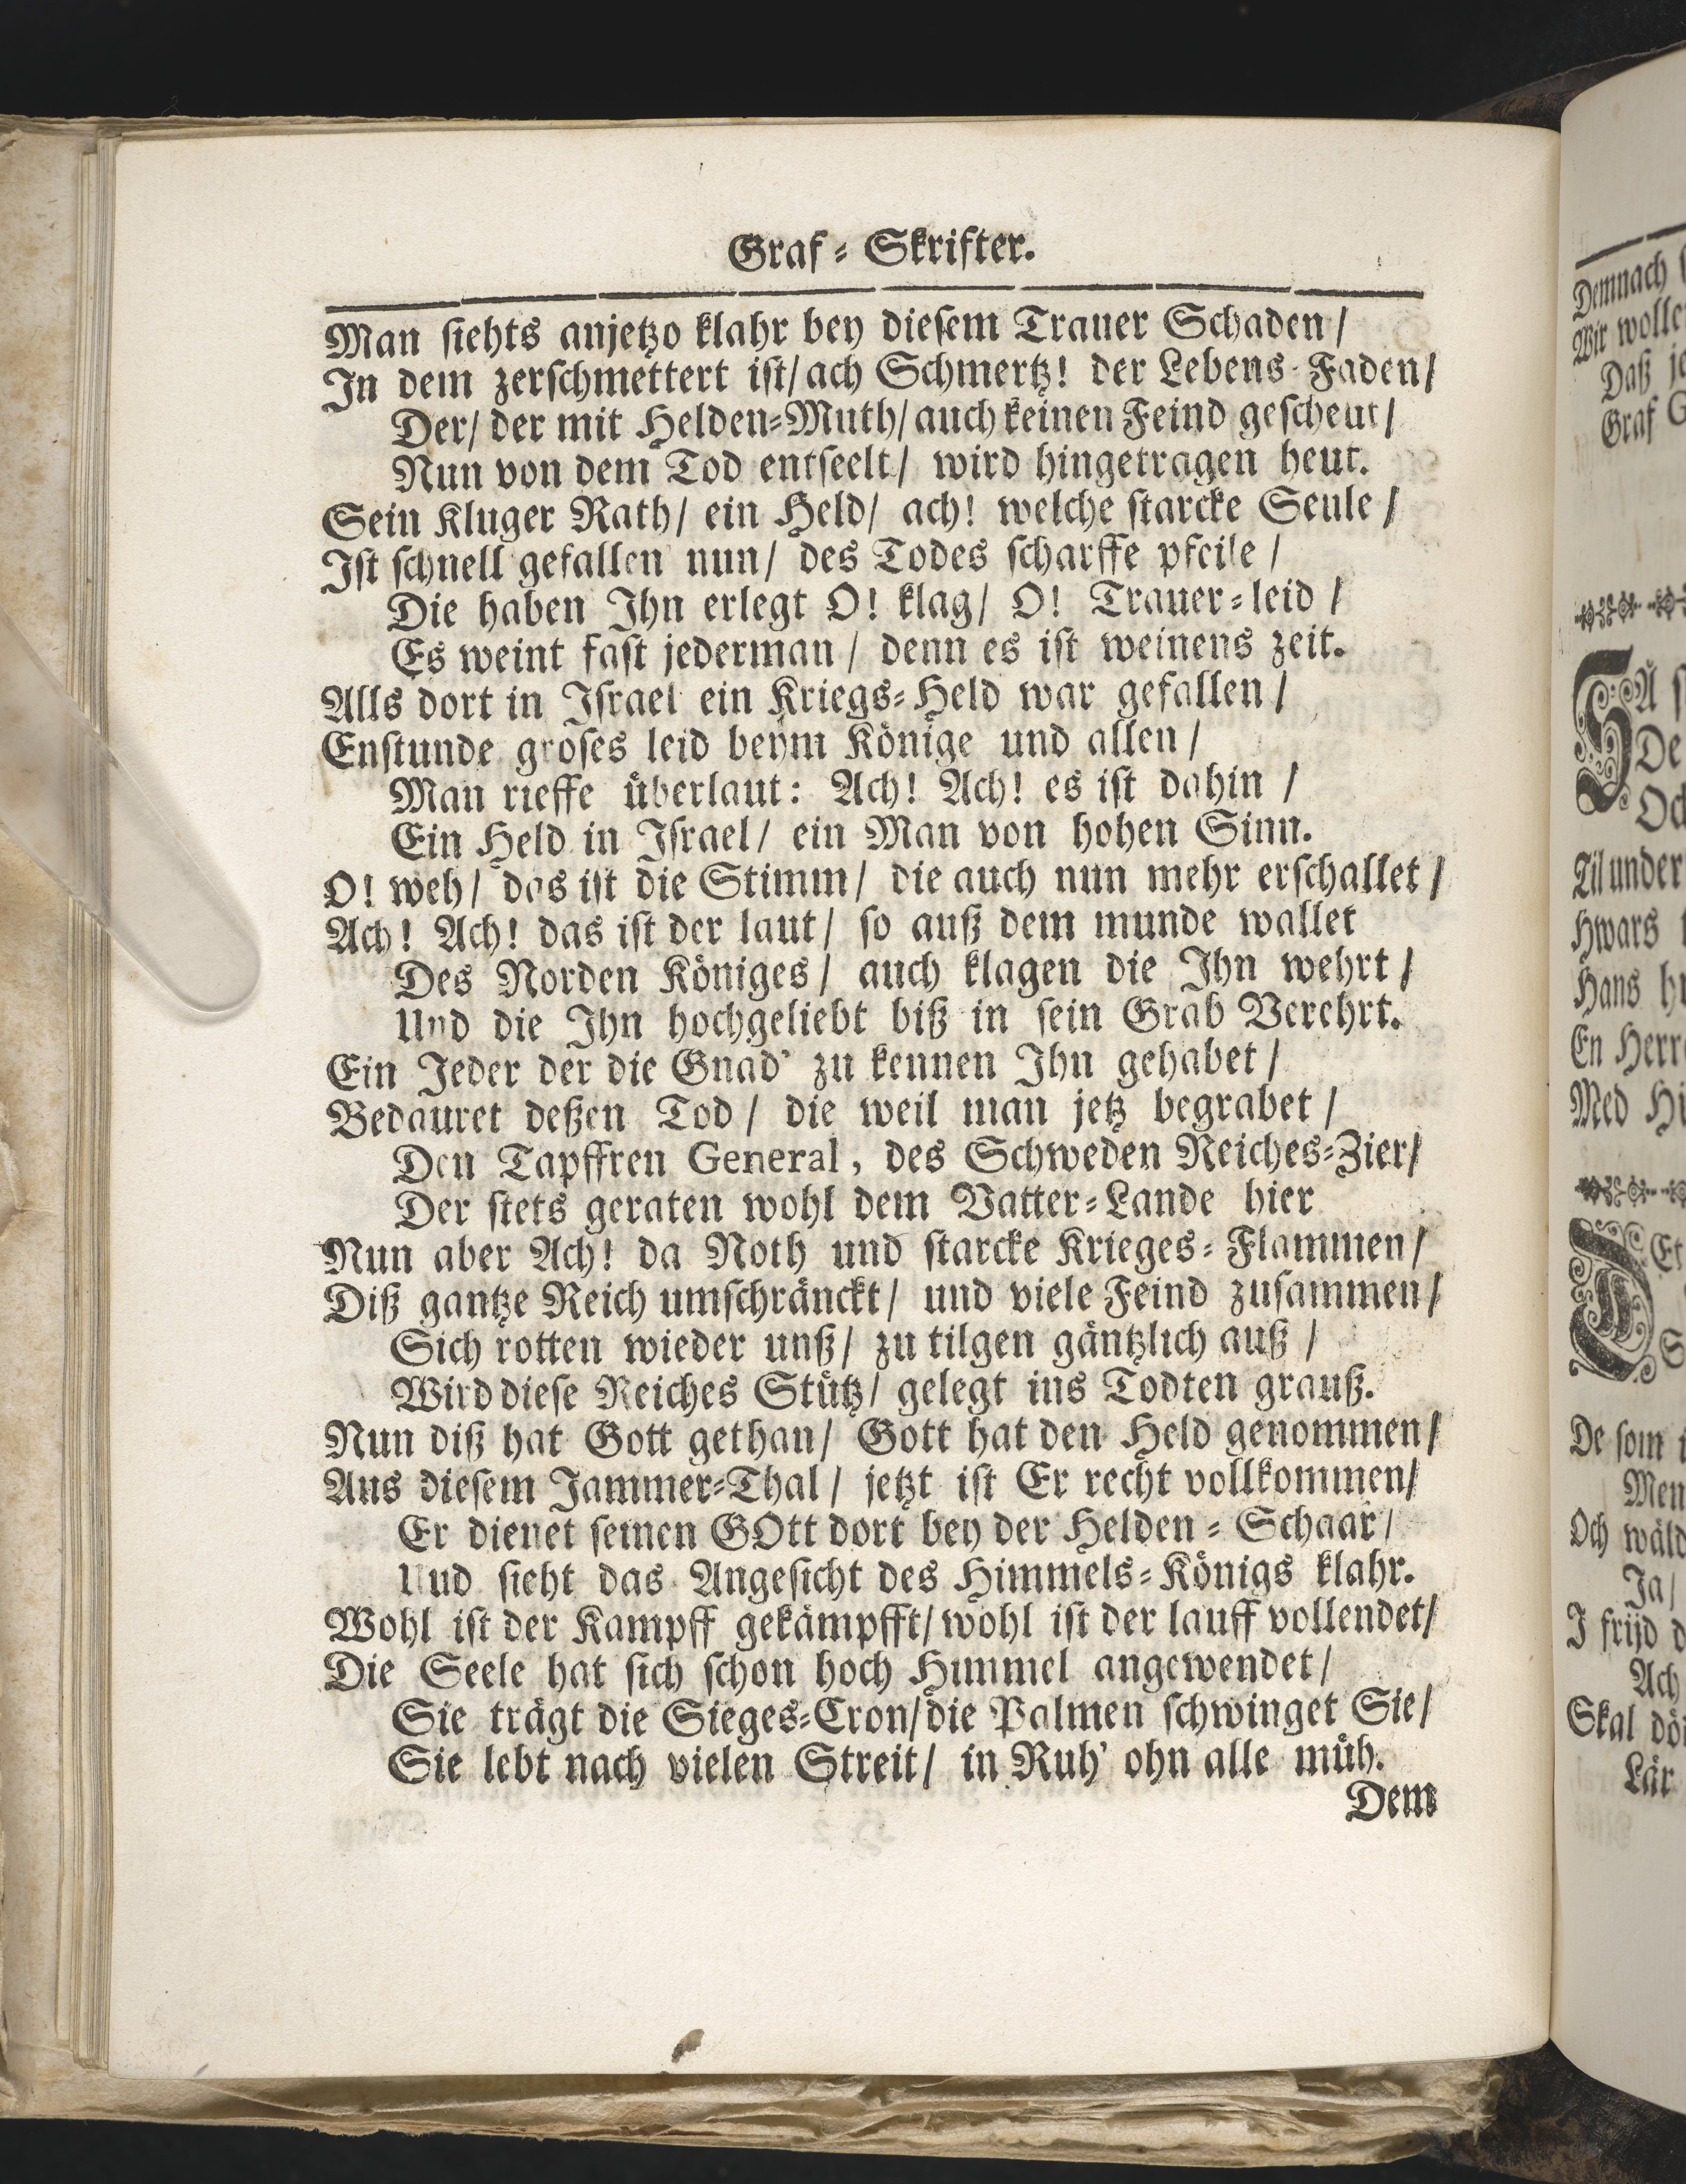 Graf-Skrifter.
Man siehts anjetzo klahr bey diesem Trauer Schaden/
In dem zerschmettert ist/ ach Schmertz! der Lebens-Faden/
Der/ der mit Helden-Muth/ auch keinen Feind gescheut/
Nun von dem Tod entseelt/ wird hingetragen heut.
Sein Kluger Rath/ ein Held/ ach! welche starcke Seule/
Ist schnell gefallen nun/ des Todes scharffe pfeile/
Die haben Ihn erlegt O! klag/ O! Trauer-leid/
Es weint fast jederman/ denn es ist weinens zeit.
Alls dort in Israel ein Kriegs-Held war gefallen/
Enstunde groses leid beym Könige und allen/
Man rieffe überlaut: Ach! Ach! es ist dahin/
Ein Held in Israel/ ein Man von hohen Sinn.
O! weh/ das ist die Stimm/ die auch nun mehr erschallet/
Ach! Ach! das ist der laut/ so auß dem munde wallet
Des Norden Königes/ auch klagen die Ihn wehrt/
Und die Ihn hochgeliebt biß in sein Grab Verehrt.
Ein Jeder der die Gnad' zu kennen Ihn gehabet/
Bedauret deßen Tod/ die weil man jetz begrabet/
Den Tapffren General, des Schweden Reiches-Zier/
Der stets geraten wohl dem Vatter-Lande hier
Nun aber Ach! da Noth und starcke Krieges-Flammen/
Diß gantze Reich umschränckt/ und viele Feind zusammen/
Sich rotten wieder unß/ zu tilgen gäntzlich auß/
Wird diese Reiches Stütz/ gelegt ins Todten grauß.
Nun diß hat Gott gethan/ Gott hat den Held genommen/
Aus diesem Jammer-Thal/ jetzt ist Er recht vollkommen/
Er dienet seinen GOtt dort bey der Helden-Schaar/
Und sieht das Angesicht des Himmels-Königs klahr.
Wohl ist der Kampff gekämpfft/ wohl ist der lauff vollendet/
Die Seele hat sich schon hoch Himmel angewendet/
Sie trägt die Sieges-Cron/ die Palmen schwinget Sie/
Sie lebt nach vielen Streit/ in Ruh' ohn alle müh.
Dem
Demnach
Wir
Daß
Graf
De
Til under
Hwars
Hans
En
Med
De som
Men
Och
Ja/
I frijd
Ach
Skal
Lär